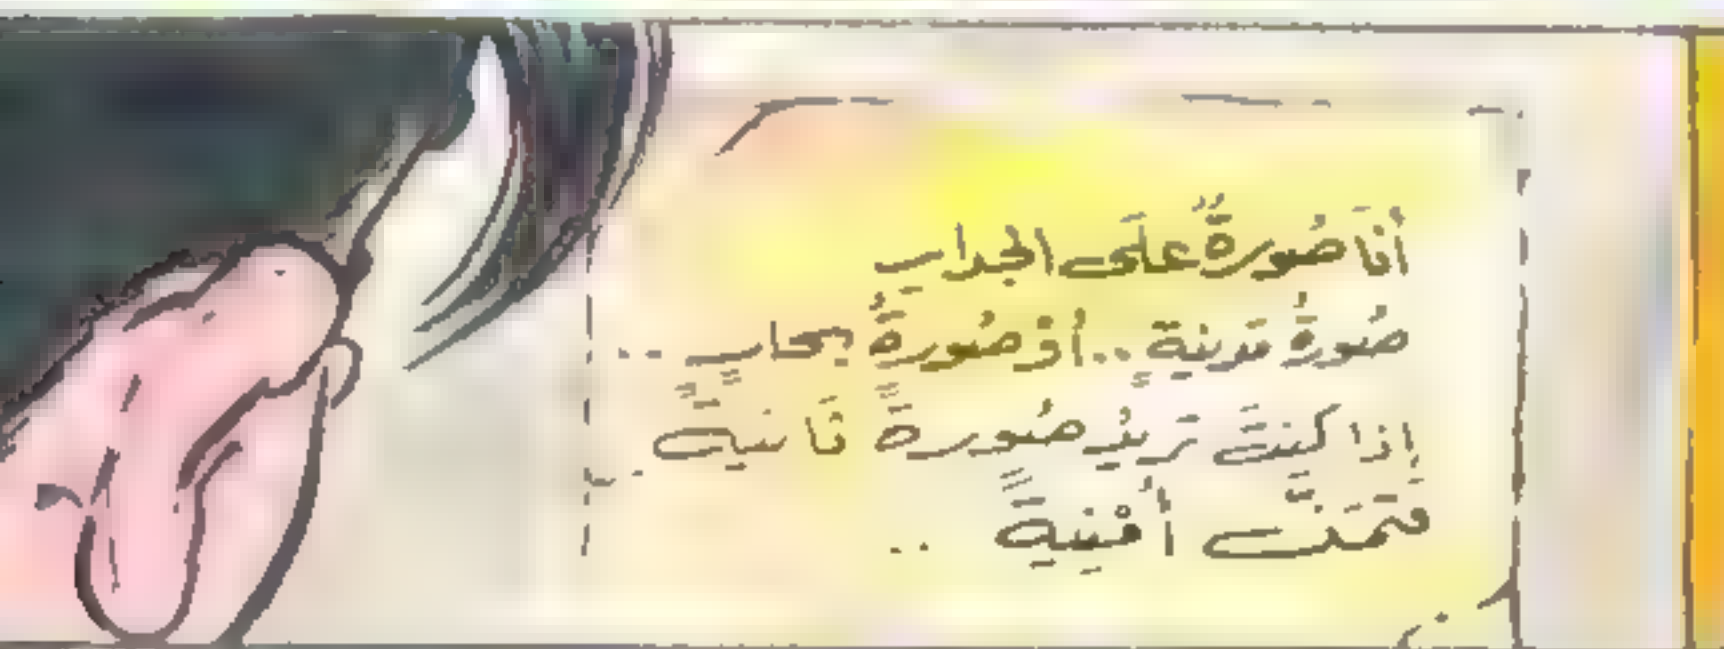 أنَا صُورةٌ علَى الجدابِ
صُورةُ مَدينةٍ .. أوْ صُورةُ بحابٍ ..
إذا كنتَ تريدُ صُورةً ثَانيةً
فتمَنَّ أمْنِيةً ..